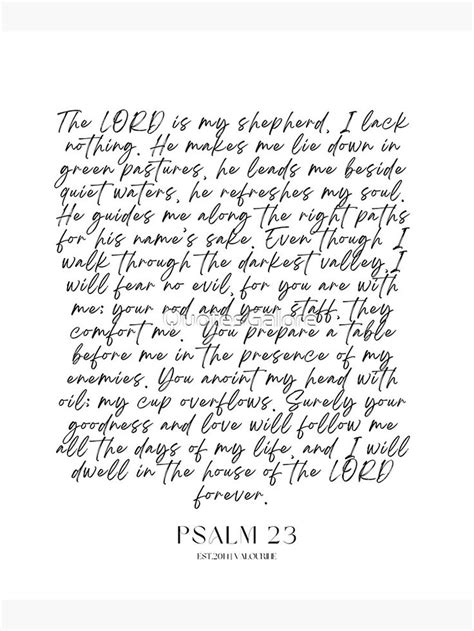 The LORD is my shepherd, I lack
nothing. He makes me lie down in
green pastures, he leads me beside
quiet waters, he refreshes my soul.
He guides me along the right paths
for his name's sake. Even though I
walk through the darkest valley, I
will fear no evil, for you are with
me; your rod and your staff, they
comfort me. You prepare a table
QuotesGalore
before me in the presence of my
enemies. You anoint my head with
oil; my cup overflows. Surely your
goodness and love will follow me
all the days of my life, and I will
dwell in the house of the LORD
forever.
PSALM 23